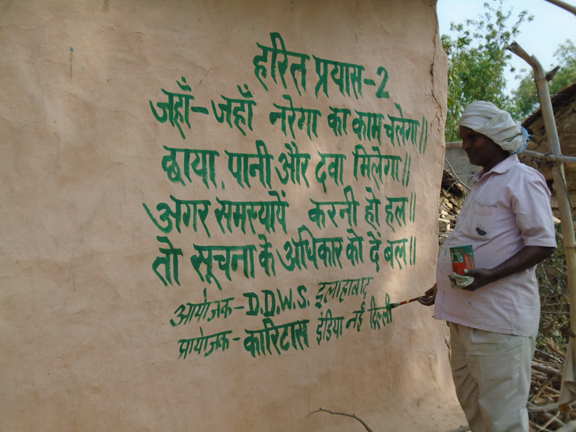 हरित प्रयास-2
जहाँ-जहाँ नरेगा का काम चलेगा।।
छाया, पानी और दवा मिलेगा।।
अगर समस्यायें करनी हो हल।।
तो सूचना के अधिकार को दें बल।।
आयोजक-D.D.W.S. इलाहाबाद
प्रायोजक-कारिटास इंडिया नई दिल्ली